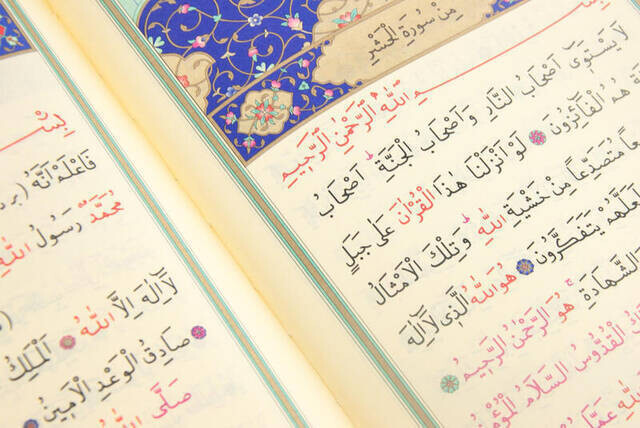 مِنْ سُورَةِ الْحَشْرِ
اللهِ الرَّحْمٰنِ الرَّحِيمِ
لَا يَسْتَوِى اَصْحَابُ النَّارِ وَاَصْحَابُ الْجَنَّةِ اَصْحَابُ
هُمُ الْفَائِزُونَ لَوْ اَنْزَلْنَا هٰذَا الْقُرْاٰنَ عَلٰى جَبَلٍ
مُتَصَدِّعًا مِنْ خَشْيَةِ اللهِ وَتِلْكَ الْاَمْثَالُ
يَتَفَكَّرُونَ هُوَ اللهُ الَّذِى لَا اِلٰهَ
الشَّهَادَةِ هُوَ الرَّحْمٰنُ الرَّحِيمُ
الْقُدُّوسُ السَّلَامُ
اللهِ
فَاعْلَمْ اَنَّهُ
مُحَمَّدٌ رَسُولُ اللهِ
لَا اِلٰهَ اِلَّا اللهُ اَلْمَلِكُ
صَادِقُ الْوَعْدِ الْاَمِينُ
صَلَّى اللهُ